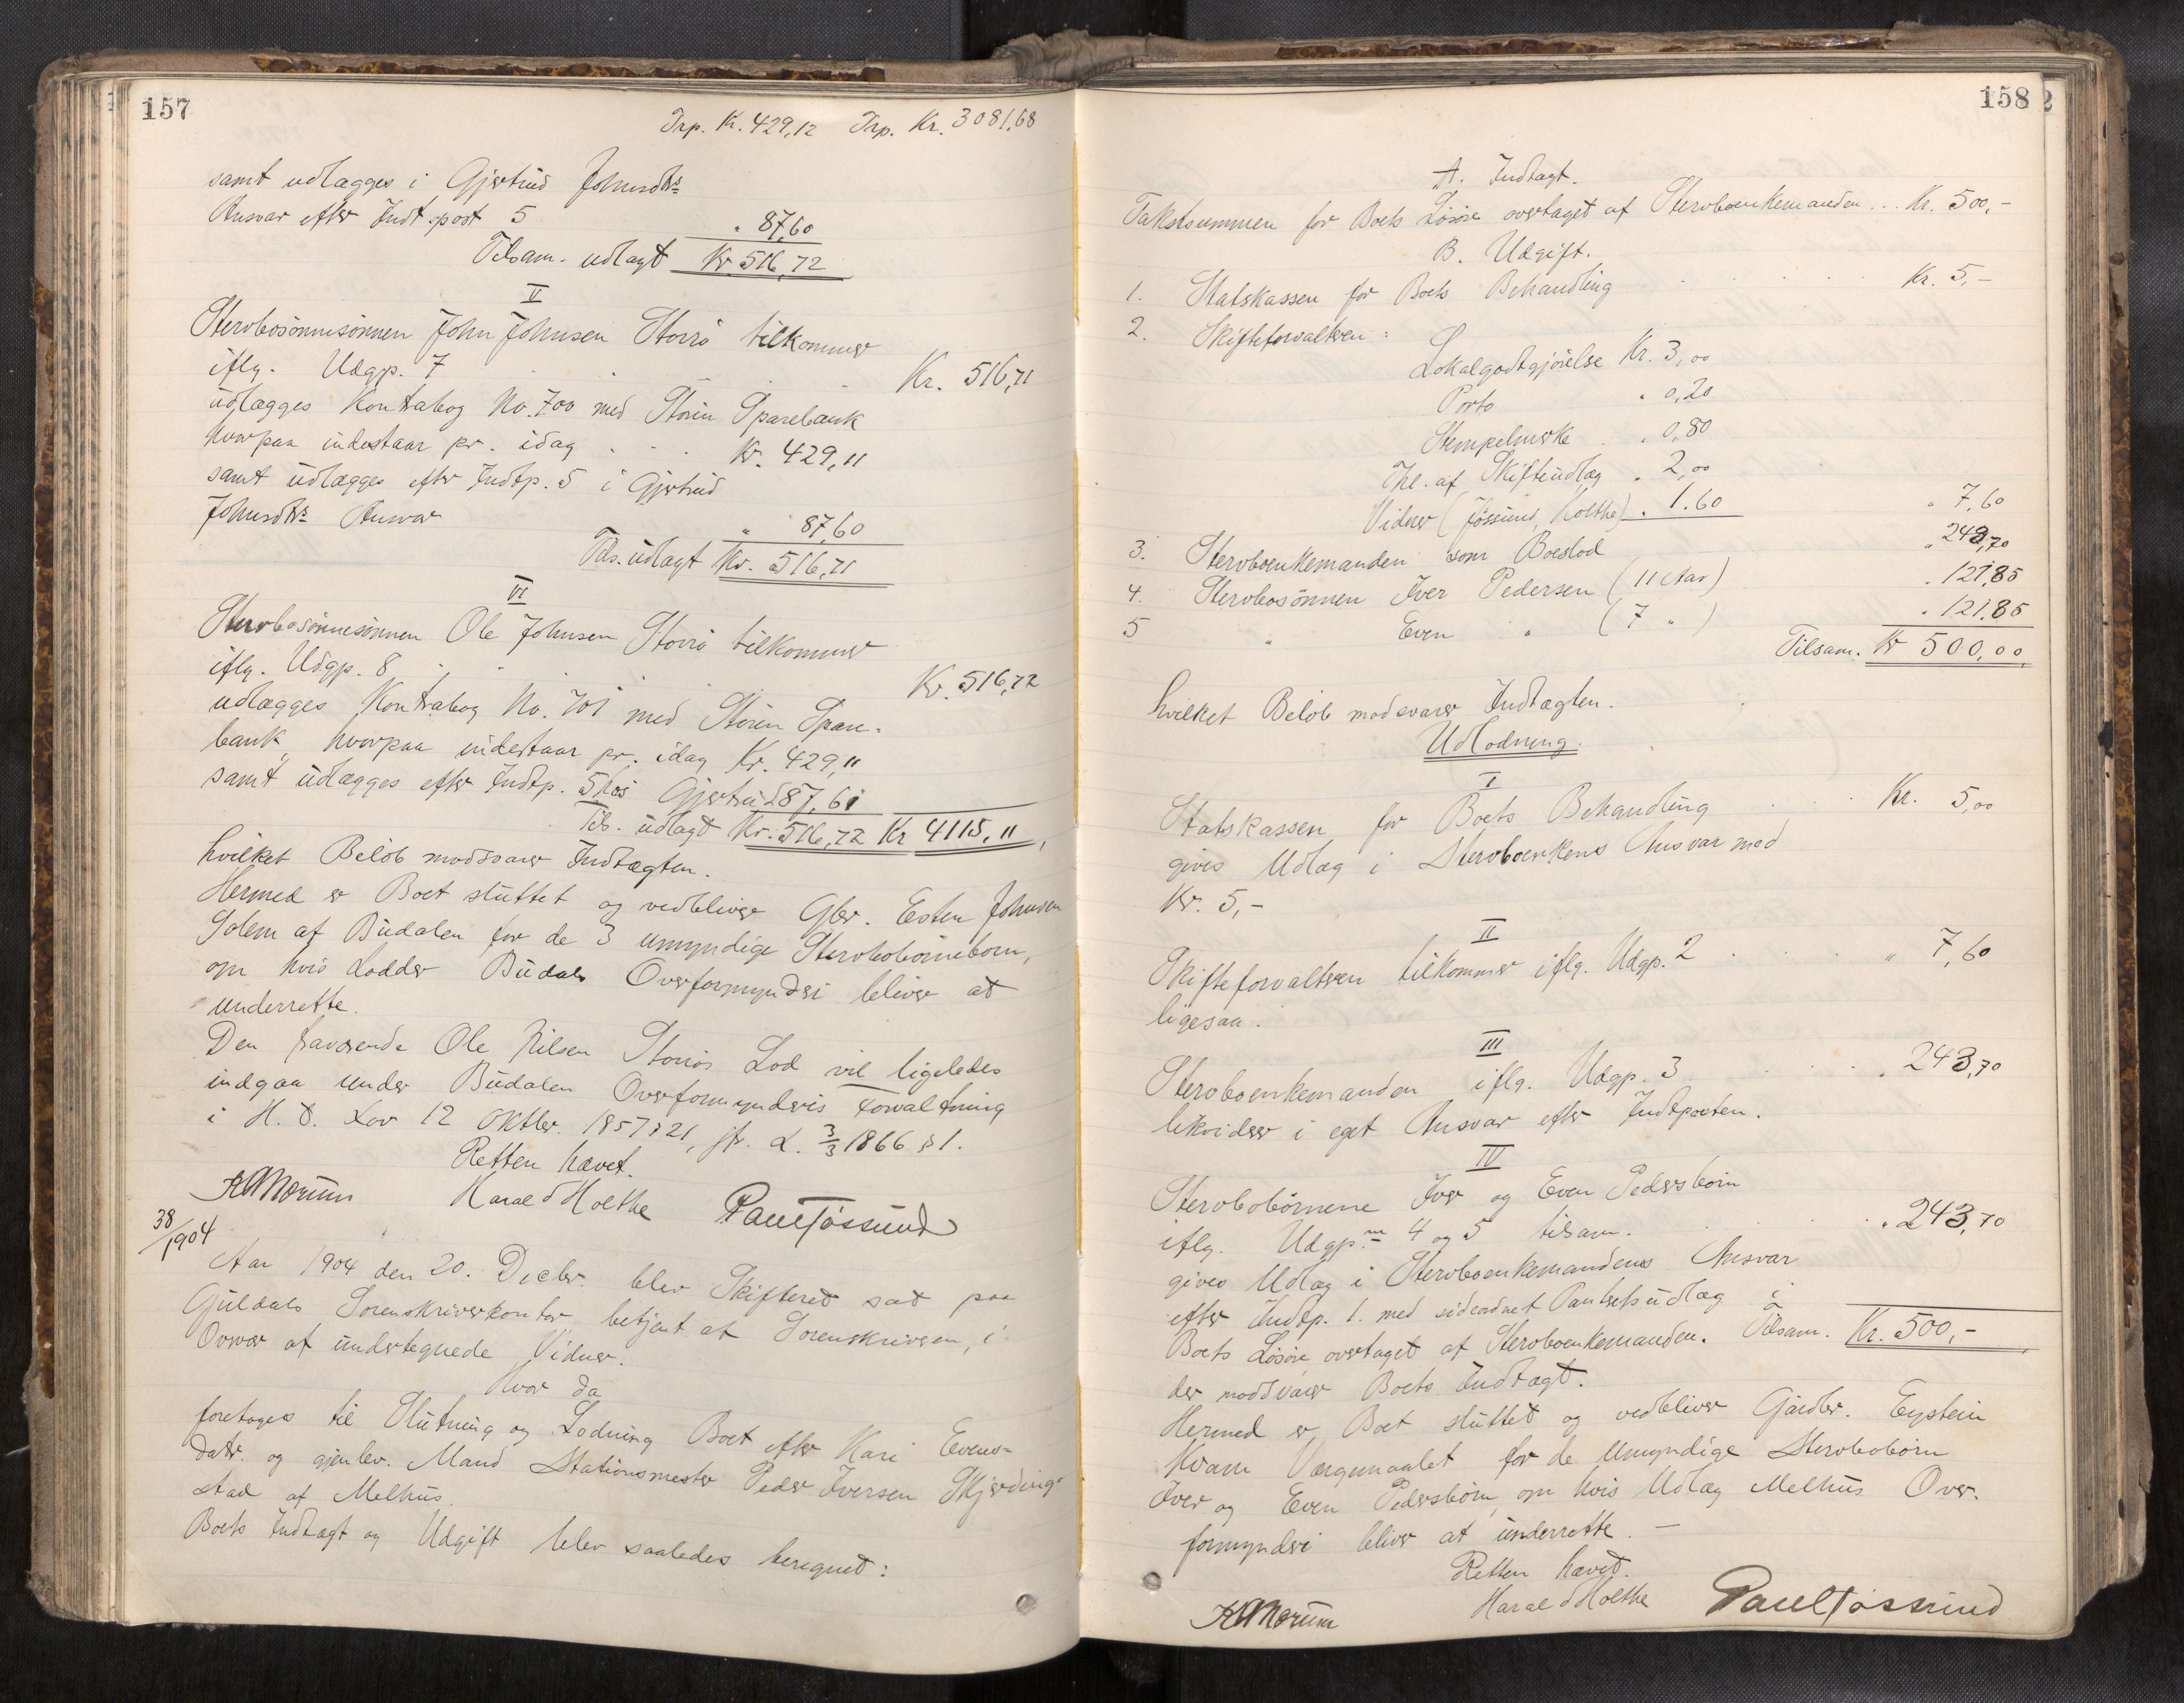 157
Trp. Kr. 429,12 Trp. Kr. 3081,68
samt udlægges i Gjertrud Johnsdtrs
Ansvar efter Indt.post 5 " 87,60
Tilsam. udlagt Kr 516,72
V
Sterbosönnesönnen John Johnsen Storrö tilkommer
iflg. Udgp. 7 . . . . Kr. 516,71
udlægges Kontrabog No. 700 med Stören Sparebank
hvorpaa indestaar pr. idag . . . Kr. 429,11
samt udlægges efter Indtp. 5 i Gjertrud
Johnsdtrs Ansvar " 87,60
Tils. udlagt Kr. 516,71
VI
Sterbosönnesönnen Ole Johnsen Storrö tilkommer
iflg. Udgp. 8 . . . Kr. 516,72
udlægges Kontrabog No. 701 med Stören Spare-
bank, hvorpaa indestaar pr. idag Kr. 429,11
samt udlægges efter Indtp. 5 hos Gjertrud 87,61
Tils. udlagt Kr. 516,72 Kr 4115,11,
hvilket Belöb modsvarer Indtægten.
Hermed er Boet sluttet og vedbliver Gbr. Esten Johnsen
Solem af Budalen for de 3 umyndige Sterbobörnebörn,
om hvis Lodder Budals Overformynderi bliver at
underrette.
Den fraværende Ole Nilsen Storrös Lod vil ligeledes
indgaa under Budalen Overformynderis Forvaltning
i H. t. Lov 12 Oktbr. 1857 § 21, jfr. L. 3/3 1866 § 1.
Retten hævet.
Harald Holthe Paul Jössund
38/1904
Aar 1904 den 20. Decbr. blev Skifteret sat paa
Guldals Sorenskriverkontor betjent af Sorenskriveren, i
Overvær af undertegnede Vidner.
Hvor da
foretoges til Slutning og Lodning Boet efter Kari Evens-
datr. og gjenlev. Mand Stationsmester Peder Iversen Skjerding-
stad af Melhus.
Boets Indtægt og Udgift blev saaledes beregnet:
158
A. Indtægt.
Takstsummen for Boets Lösöre overtaget af Sterboenkemanden... Kr. 500,-
B. Udgift.
1. Statskassen for Boets Behandling . . . . . Kr. 5,-
2. Skifteforvalteren:
Lokalgodtgjörelse Kr. 3,00
Porto " 0,20
Stempelmerke . " 0,80
Thl. af Skifteudlæg " 2,00
Vidner (Jössund, Holthe) " 1.60 " 7,60
3. Sterboenkemanden som Boeslod " 243,70
4. Sterbosönnen Iver Pedersen (11 Aar) " 121,85
5 " Even " (7 " ) " 121,85
Tilsam. Kr 500,00,
hvilket Belöb modsvarer Indtægten.
Udlodning.
I
Statskassen for Boets Behandling . . . Kr. 5,00
gives Udlæg i Sterboenkems Ansvar med
Kr. 5,-
II
Skifteforvalteren tilkommer iflg. Udgp. 2 . . . . " 7,60
ligesaa.
III
Sterboenkemanden iflg. Udgp. 3 . . . . " 243,70
likviderer i eget Ansvar efter Indtposten.
IV
Sterbobörnene Iver og Even Pedersbörn
iflg. Udgp.ne 4 og 5 tilsam. . . . . " 243,70
gives Udlæg i Sterboenkemandens Ansvar
efter Indtp. 1. med sideordnet Panteretsudlæg i
Boets Lösöre overtaget af Sterboenkemanden. Tilsam. Kr. 500,-,
der modsvarer Boets Indtægt.
Hermed er Boet sluttet og vedbliver Gårdbr. Eystein
Kvam Værgemaalet for de umyndige Sterbobörn
Iver og Even Pedersbörn, om hvis Udlæg Melhus Over-
formynderi bliver at underrette. —
Retten hævet.
Harald Holthe Paul Jössund